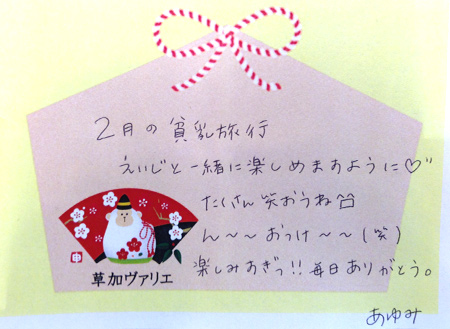 2月の貧乳旅行
えいじと一緒に楽しめますように♡
たくさん笑おうね
ん〜〜おっけ〜〜(笑)
楽しみすぎっ!!毎日ありがとう。
あゆみ
申
草加ヴァリエ